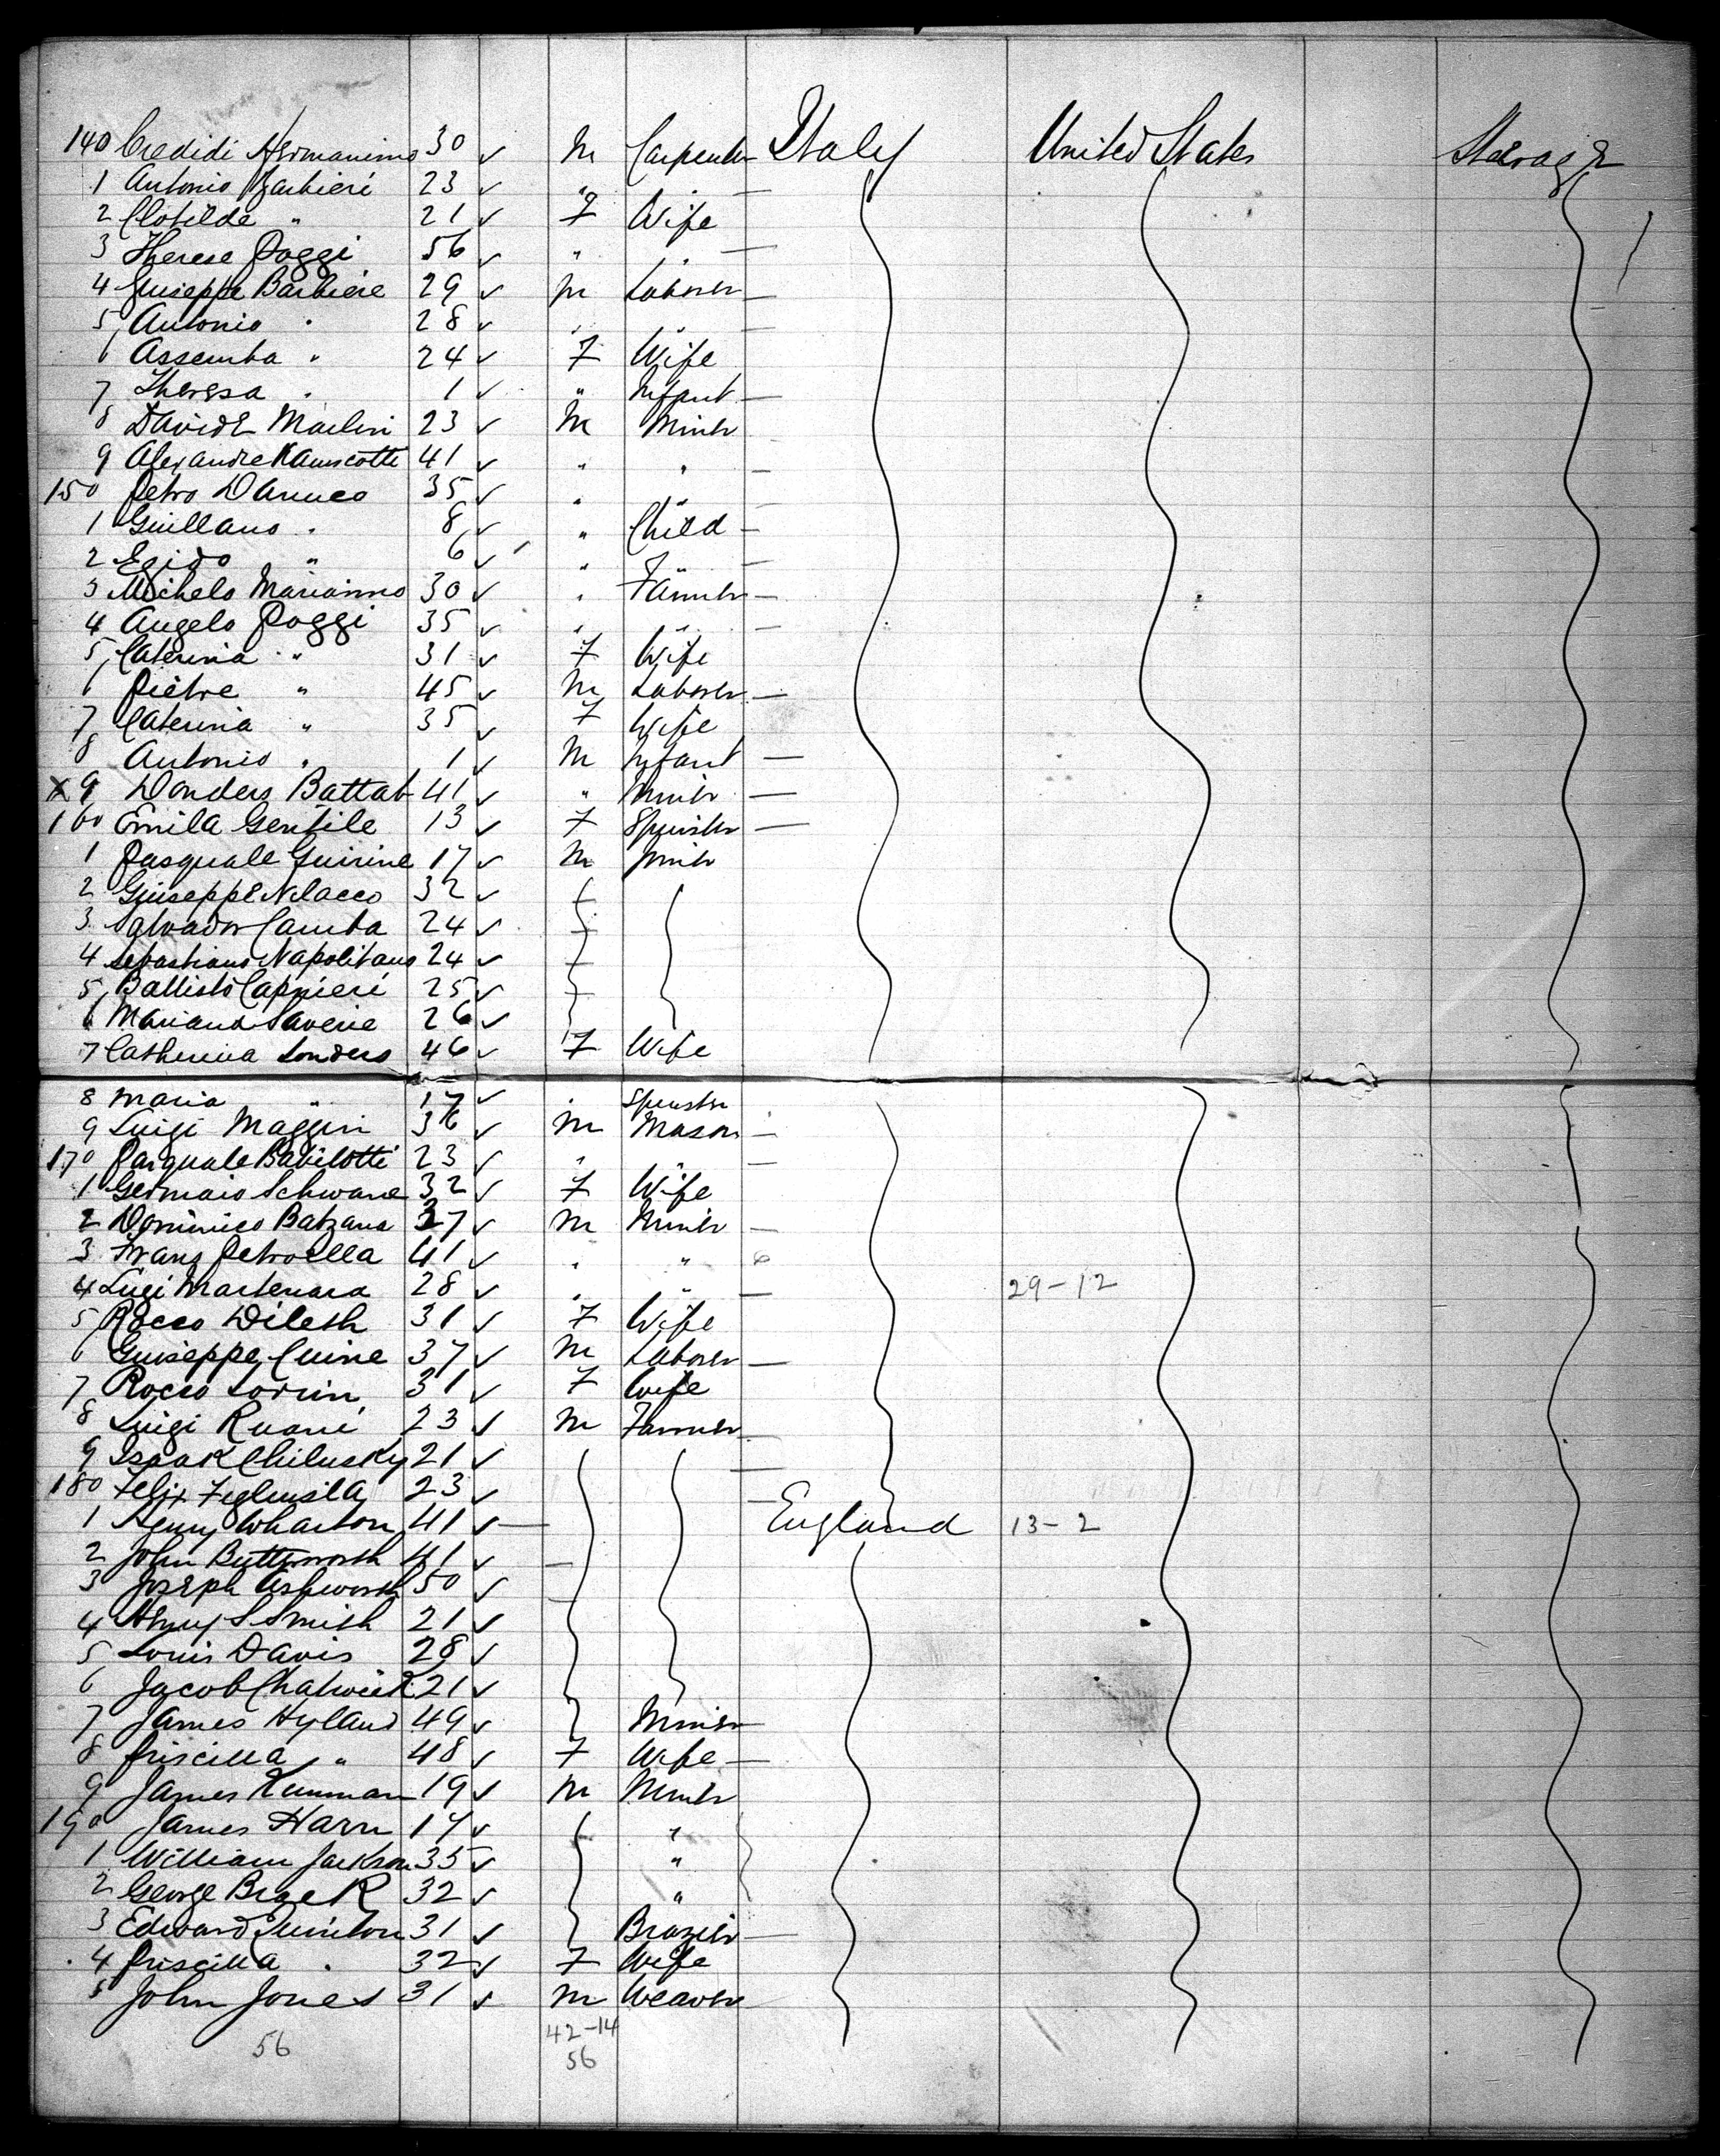 140 Credidi Hermanimo 30 ✓ M Carpenter Italy United States Steerage
1 Antonio Barbieri 23 ✓ " —
2 Clotilde " 21 ✓ F Wife
3 Therese Poggi 56 ✓ " " —
4 Guiseppe Barbiere 29 ✓ M Laborer —
5 Antonio " 28 ✓ " " —
6 Assemba " 24 ✓ F Wife
7 Theresa " 1 ✓ " Infant —
8 Davide Marlin 23 ✓ M Miner
9 Alexandre 41 ✓ " " —
150 Petro Danuco 35 ✓ " " —
1 Guillano " 8 ✓ " Child —
2 Egido " 6 ✓ " " —
3 Michelo Marianno 30 ✓ " Farmer —
4 Angelo Poggi 35 ✓ " " —
5 Caterina " 31 ✓ F Wife
6 Pietre " 45 ✓ M Laborer —
7 Caterina " 35 ✓ F Wife
8 Antonio " 1 ✓ M Infant —
X 9 Donders Battat 41 ✓ " Miner —
160 Emila Gentile 13 ✓ F Spinster —
1 Pasquale Guirine 17 ✓ M Miner
2 Giuseppe 32 ✓
3 Salvador Camba 24 ✓
4 Sebastiano Napolitano 24 ✓
5 Battisto Capnieri 25 ✓
6 Mariana Saverie 26 ✓
7 Catherina Londers 46 ✓ F Wife
8 Maria " 17 ✓ " Spinster
9 Luigi Maggin 36 ✓ M Mason —
170 Pasquale Babilotti 23 ✓ " " —
1 Germaio Schwane 32 ✓ F Wife
2 Dominico Batzana 27 ✓ M Miner —
3 Franz Petroella 41 ✓ " "
4 Luigi Martenara 28 ✓ " " — 29-12
5 Rocco Dileth 31 ✓ F Wife
6 Guiseppe Cuine 37 ✓ M Laborer —
7 Rocco Lorrin 31 ✓ F Wife
8 Luigi Ruani 23 ✓ M Farmer —
9 Isaak Chilusky 21 ✓ —
180 Felix 23 ✓ —
1 Henry Wharton 41 ✓ — England 13-2
2 John Butterworth 41 ✓
3 Joseph Ashworth 50 ✓
4 Henry S Smith 21 ✓
5 Louis Davis 28 ✓
6 Jacob Chatwick 21 ✓
7 James Hyland 49 ✓ Miner —
8 Priscilla " 48 ✓ F Wife —
9 James Kunman 19 ✓ M Miner
190 James Harn 17 ✓ "
1 William Jackson 35 ✓ "
2 George Brack 32 ✓ "
3 Edward Quinton 31 ✓ Brazier —
4 Priscilla " 32 ✓ F Wife
5 John Jones 31 ✓ M Weaver
56 42-14
56